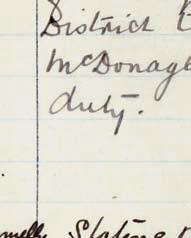 District
McDonagh
duty.
Stating